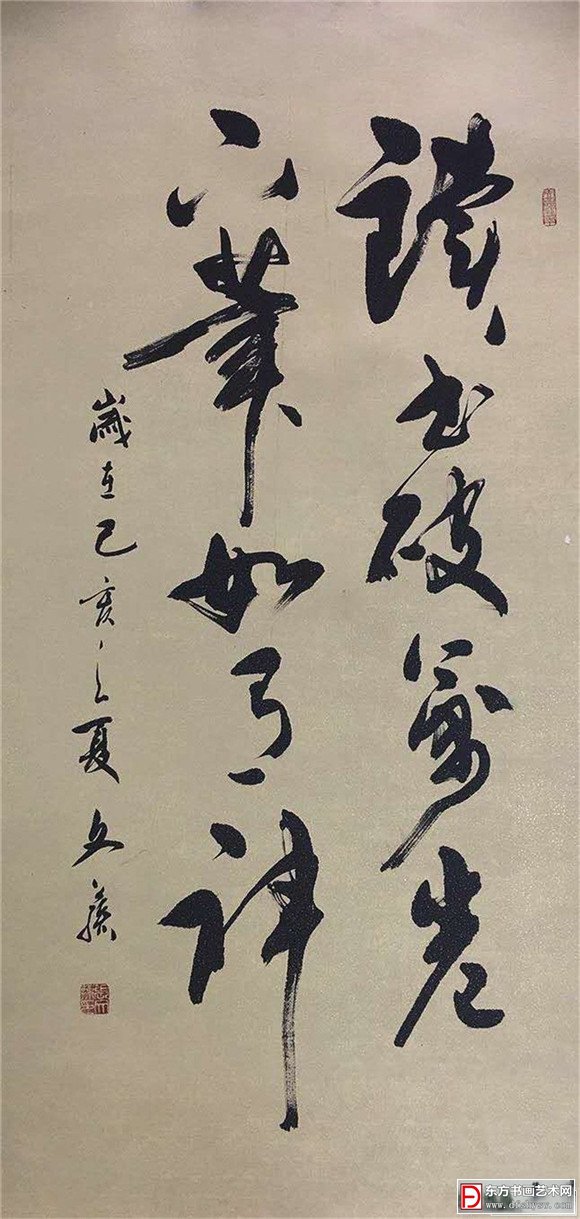 讀書破萬卷
下筆如有神
歲在己亥之夏 文
东方书画艺术网
www.dfshyws.com